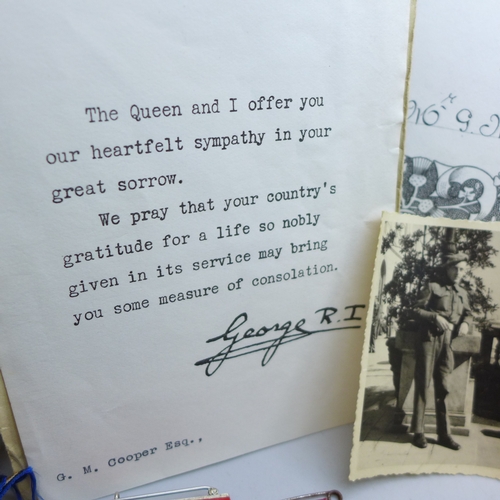 The Queen and I offer you
our heartfelt sympathy in your
great sorrow.
We pray that your country's
gratitude for a life so nobly
given in its service may bring
you some measure of consolation.
George R.I
G. M. Cooper Esq.,